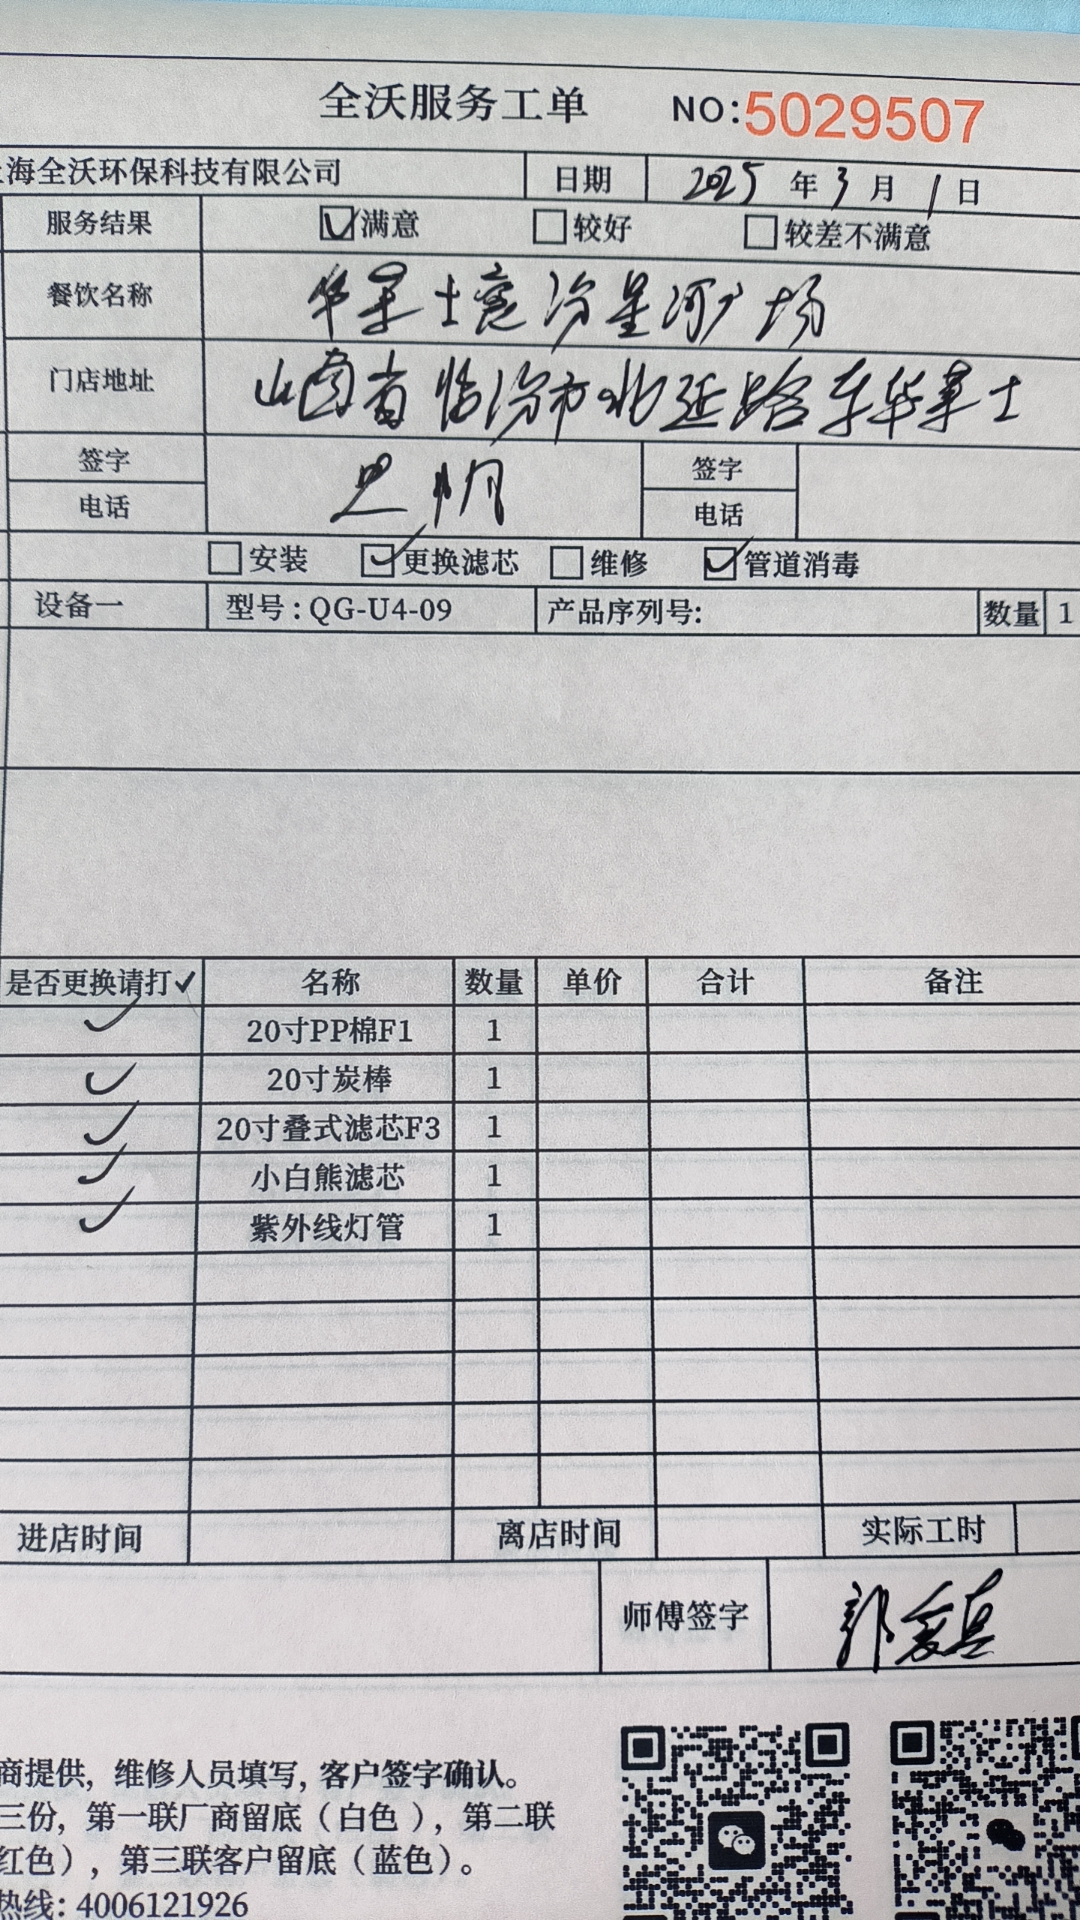 全沃服务工单 NO:5029507
海全沃环保科技有限公司 日期 2025 年 3 月 1 日
服务结果 满意 较好 较差不满意
餐饮名称 华莱士 汾星河广场
门店地址 山西省临汾市 延路 华莱士
签字 签字
电话 电话
安装 更换滤芯 维修 管道消毒
设备一 型号:QG-U4-09 产品序列号: 数量 1
是否更换请打✓ 名称 数量 单价 合计 备注
✓ 20寸PP棉F1 1
✓ 20寸炭棒 1
✓ 20寸叠式滤芯F3 1
✓ 小白熊滤芯 1
✓ 紫外线灯管 1
进店时间 离店时间 实际工时
师傅签字 郭
商提供, 维修人员填写, 客户签字确认。
三份, 第一联厂商留底(白色), 第二联
红色), 第三联客户留底(蓝色)。
热线: 4006121926